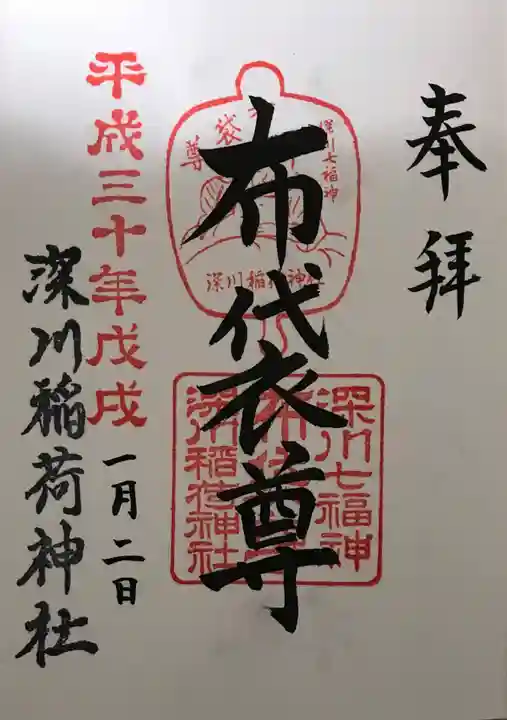 奉拝
布袋尊
深川七福神
袋
尊
深川稲荷神社
深川七福神
布袋尊
深川稲荷神社
平成三十年戊戌
一月二日
深川稲荷神社